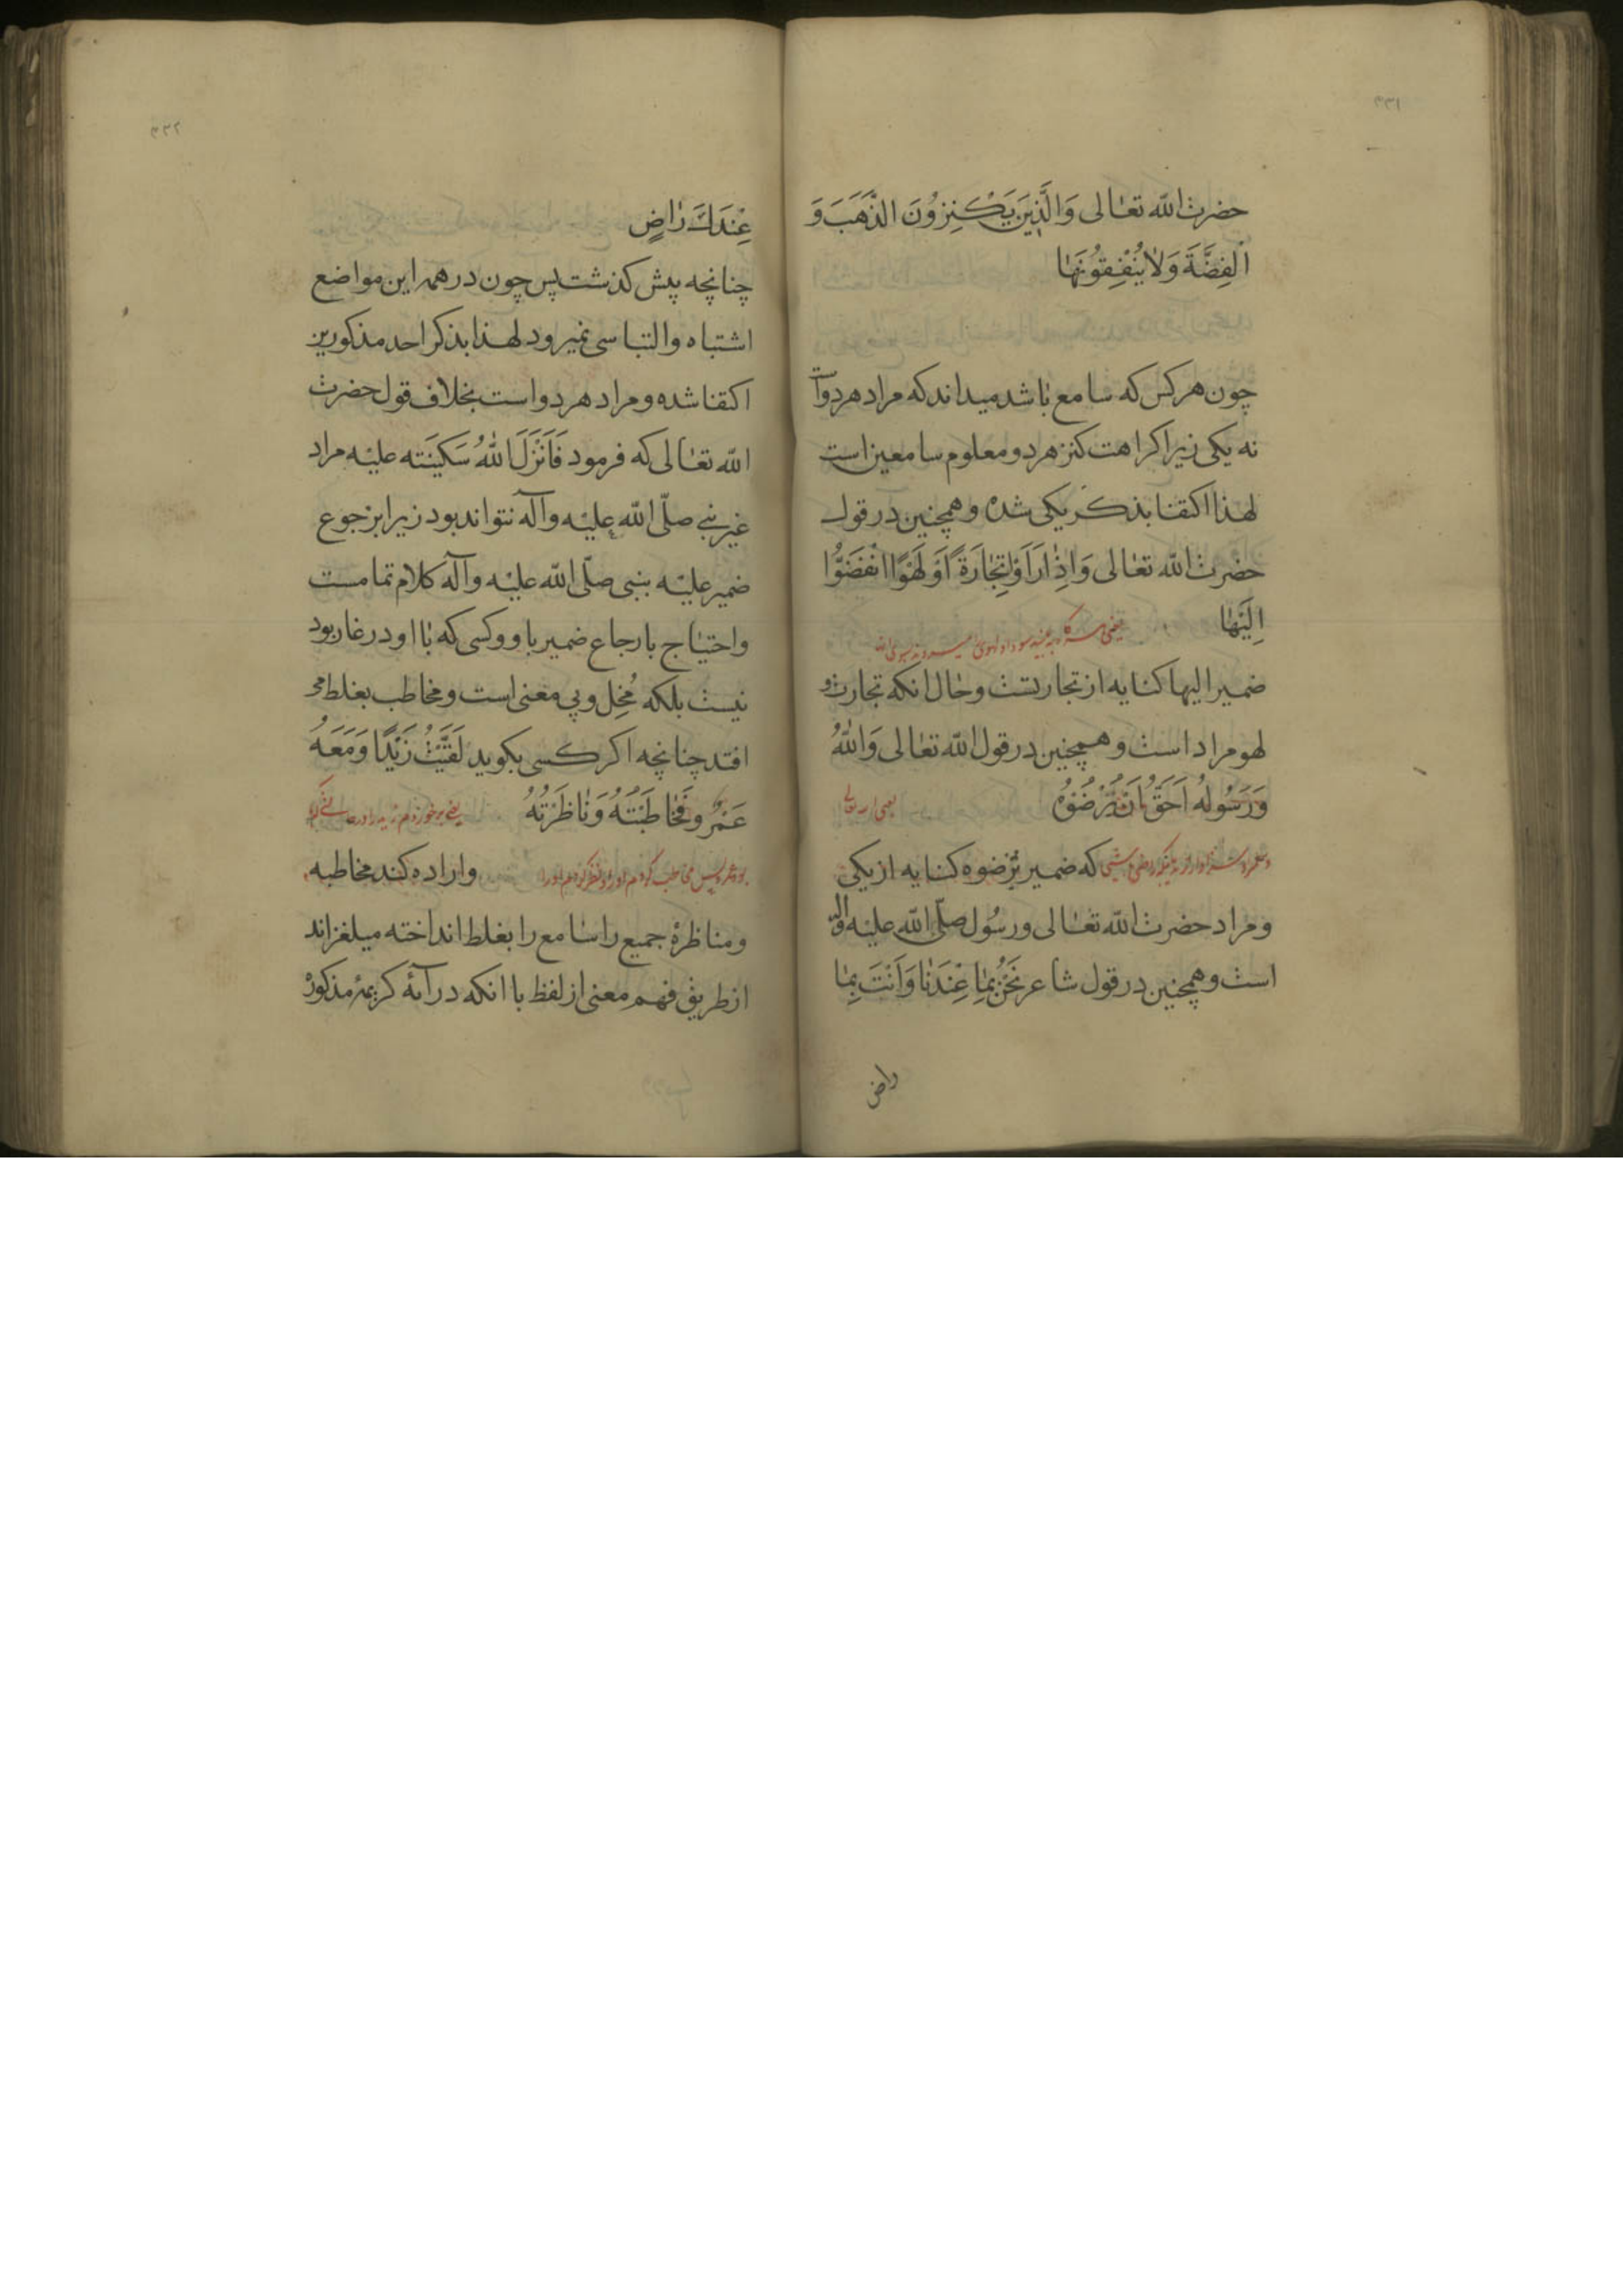 ٣٣١
حضرت الله تعالی وَالَّذِینَ یَکْنِزُونَ الذَّهَبَ وَ
الْفِضَّةَ وَلا یُنْفِقُونَهَا
چون هر کس که سامع باشد میداند که مراد هردوآ
نه یکی زیرا کراهت کنز هر دو معلوم سامعین است
لهذا اکتفا بذکر یکی شده و همچنین در قول
حضرت الله تعالی وَاِذَا رَاَوْا تِجَارَةً اَوْ لَهْوًا انْفَضُّوا
اِلَیْهَا
یعنی هر گاه به بینند سودا و لهوی میروند بسوی آن
ضمیر الیها کنایه از تجارتست وحال انکه تجارت و
لهو مراد است و همچنین در قول الله تعالی وَاللّٰهُ
وَرَسُولُهُ اَحَقُّ اَنْ یُرْضُوُهُ یعنی الله تعالی
که ضمیر یرضوه کنایه از یکی
و مراد حضرت الله تعالی و رسُول صلّی الله علیه وآله
است و همچنین در قول شاعر نَحْنُ بِمَا عِنْدَنَا وَاَنْتَ بِمَا
راض
٣٣٢
عِنْدَكَ رَاضٍ
چنانچه پیش کذشت پس چون در همه این مواضع
اشتباه والتباسی نمیرود لهذا بذکر احد مذکورین
اکتفا شده و مراد هر دو است بخلاف قول حضرت
الله تعالی که فرمود فَاَنْزَلَ اللّٰهُ سَکِینَته علیه مراد
غیر نبی صلّی الله علیه وآله نتواند بود زیرا برجوع
ضمیر علیه بنبی صلّی الله علیه وآله کلام تمامست
واحتیاج بارجاع ضمیر باو و کسی که با او در غار بود
نیست بلکه مُخِل و بی معنی است و مخاطب بغلط می
افتد چنانچه اکر کسی بکوید لَقَیْتُ زَیْدًا وَمَعَهُ
عَمْرٌو فَخَاطَبْتُهُ وَنَاظَرْتُهُ یعنی برخوردم زید را در حالتی که
بود عمرو پس مخاطب کردم او را و نظر کردم او را واراده کند مخاطبه
ومناظرهٔ جمیع را سامع را بغلط انداخته میلغزاند
از طریق فهم معنی از لفظ با انکه در آیهٔ کریمهٔ مذکوره